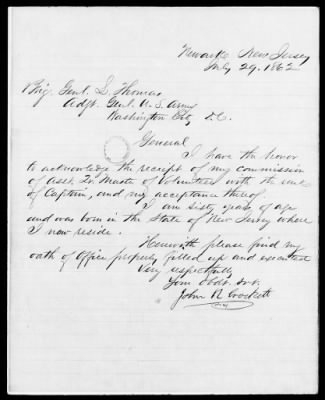 Newark New Jersey
July 29. 1862
Brig. Genl. L. Thomas
Adjt. Genl. U. S. Army
Washington City D.C.
General
I have the honor
to acknowledge the receipt of my commission
of Asst. Qr. Master of Volunteers with the rank
of Captain, and my acceptance thereof.
I am sixty years of age
and was born in the State of New Jersey where
I now reside.
Herewith please find my
oath of office properly filled up and executed
Very respectfully
Your Obdt. Svt.
John R Crockett